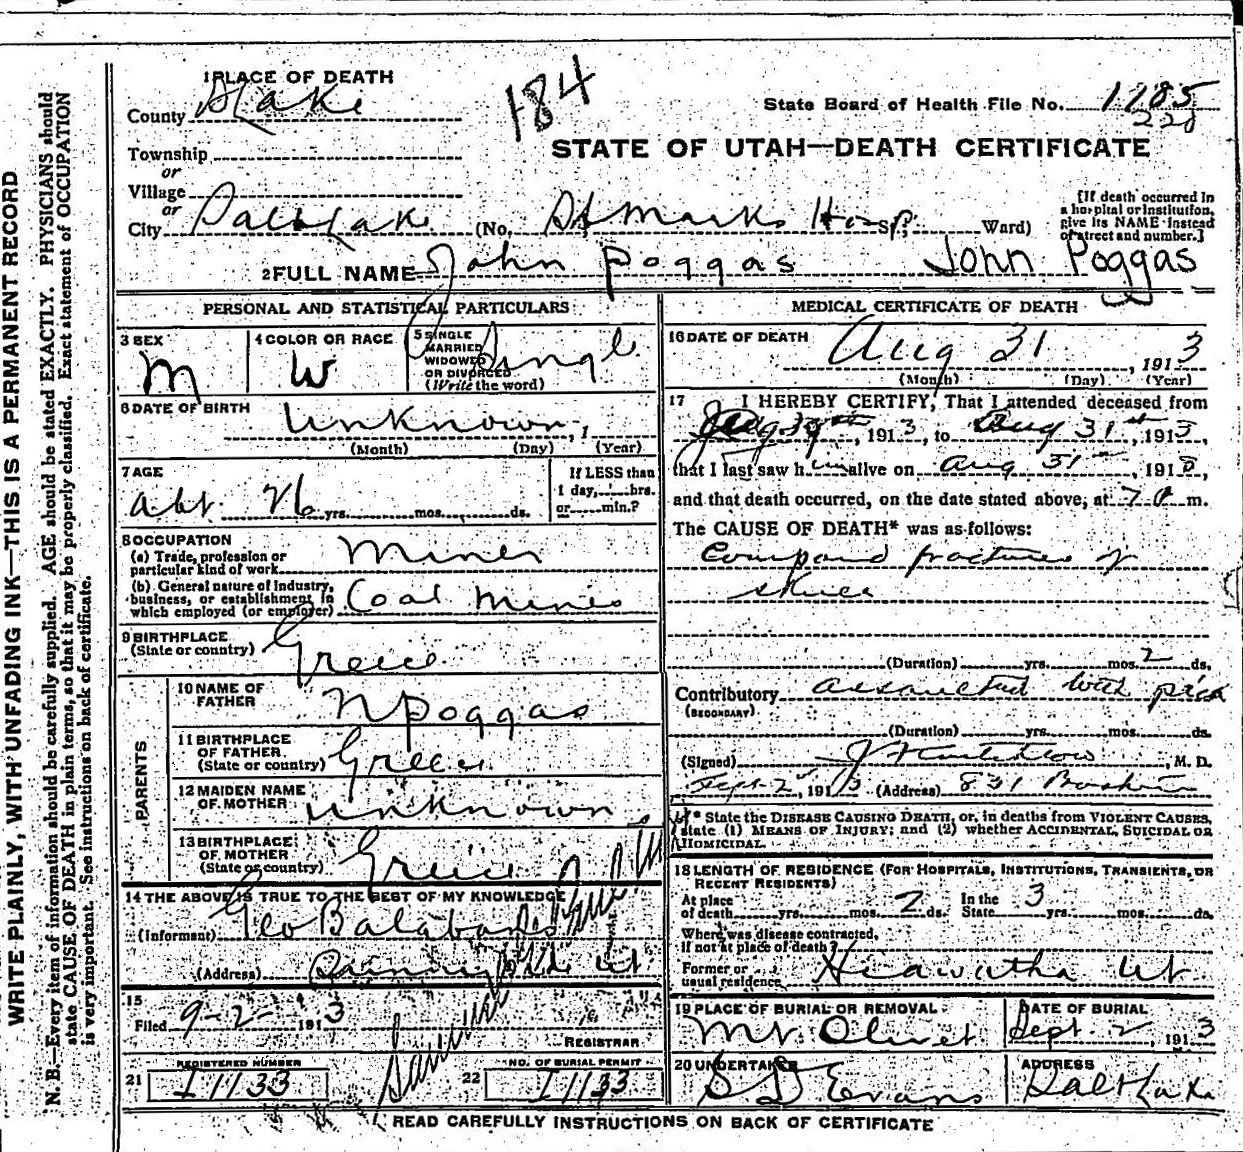 1 PLACE OF DEATH
County S Lake
184
State Board of Health File No. 1185
228
STATE OF UTAH—DEATH CERTIFICATE
Township
or
Village
or
City Salt Lake (No. St Marks Hosp. Ward)
[If death occurred in a hospital or institution, give its NAME instead of street and number.]
2 FULL NAME John Poggas John Poggas
PERSONAL AND STATISTICAL PARTICULARS
3 SEX
M
4 COLOR OR RACE
W
5 SINGLE
MARRIED
WIDOWED
OR DIVORCED
(Write the word)
Singl
6 DATE OF BIRTH
Unknown, 1
(Month) (Day) (Year)
7 AGE
abt 26 yrs. mos. ds.
If LESS than
1 day, hrs.
or min.?
8 OCCUPATION
(a) Trade, profession or
particular kind of work Miner
(b) General nature of industry,
business, or establishment in
which employed (or employer) Coal Mines
9 BIRTHPLACE
(State or country) Greice
PARENTS
10 NAME OF
FATHER N Poggas
11 BIRTHPLACE
OF FATHER
(State or country) Greece
12 MAIDEN NAME
OF MOTHER unknown
13 BIRTHPLACE
OF MOTHER
(State or country) Greice
14 THE ABOVE IS TRUE TO THE BEST OF MY KNOWLEDGE
(Informant) Geo Balabanes
(Address) Ut
15
Filed 9-2- 1913
REGISTRAR
REGISTERED NUMBER
21 I 1133
NO. OF BURIAL PERMIT
22 I 1133
MEDICAL CERTIFICATE OF DEATH
16 DATE OF DEATH
Aug 31, 1913
(Month) (Day) (Year)
17 I HEREBY CERTIFY, That I attended deceased from
Aug, 1913, to Aug 31st, 1913,
that I last saw him alive on Aug 31st, 1913,
and that death occurred, on the date stated above, at 7 m.
The CAUSE OF DEATH* was as follows:
Compound fracture of
skull
(Duration) yrs. mos. 2 ds.
Contributory assaulted with pick
(SECONDARY)
(Duration) yrs. mos. ds.
(Signed), M. D.
Sept 2, 1913 (Address) 831 Boston
* State the DISEASE CAUSING DEATH, or, in deaths from VIOLENT CAUSES,
state (1) MEANS OF INJURY; and (2) whether ACCIDENTAL, SUICIDAL OR
HOMICIDAL.
18 LENGTH OF RESIDENCE (FOR HOSPITALS, INSTITUTIONS, TRANSIENTS, OR
RECENT RESIDENTS)
At place
of death yrs. mos. 2 ds. In the State 3 yrs. mos. ds.
Where was disease contracted,
if not at place of death?
Former or
usual residence Hiawatha Ut
19 PLACE OF BURIAL OR REMOVAL
Mt. Olivet
DATE OF BURIAL
Sept. 2, 1913
20 UNDERTAKER
S D Evans
ADDRESS
Salt Lake
READ CAREFULLY INSTRUCTIONS ON BACK OF CERTIFICATE
WRITE PLAINLY, WITH UNFADING INK—THIS IS A PERMANENT RECORD
N. B.—Every item of information should be carefully supplied. AGE should be stated EXACTLY. PHYSICIANS should
state CAUSE OF DEATH in plain terms, so that it may be properly classified. Exact statement of OCCUPATION
is very important. See instructions on back of certificate.